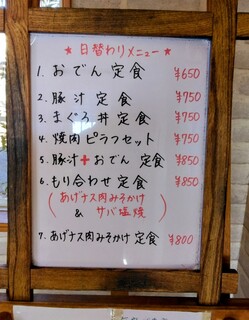 ★日替わりメニュー★
1. おでん定食 ¥650
2. 豚汁定食 ¥750
3. まぐろ丼定食 ¥750
4. 焼肉ピラフセット ¥750
5. 豚汁+おでん定食 ¥850
6. もり合わせ定食 ¥850
(あげナス肉みそかけ
& サバ塩焼)
7. あげナス肉みそかけ定食 ¥800